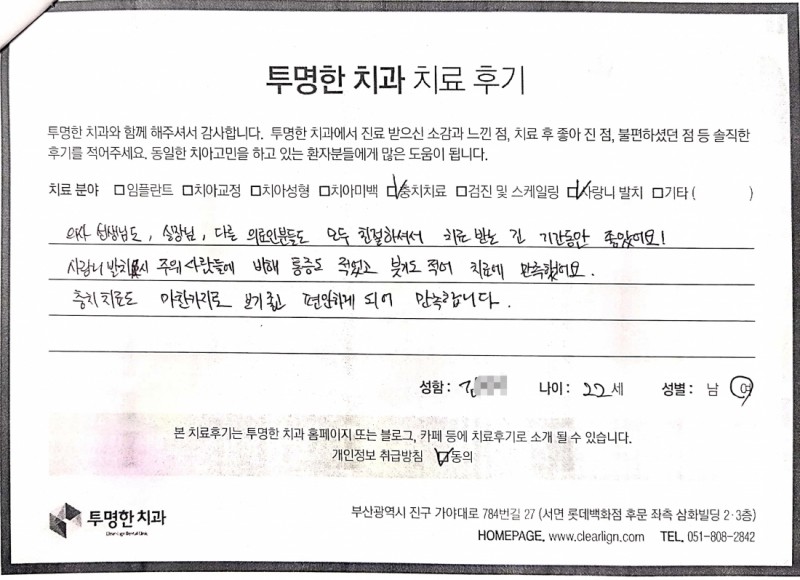 투명한 치과 치료 후기
투명한 치과와 함께 해주셔서 감사합니다. 투명한 치과에서 진료 받으신 소감과 느낀 점, 치료 후 좋아 진 점, 불편하셨던 점 등 솔직한
후기를 적어주세요. 동일한 치아고민을 하고 있는 환자분들에게 많은 도움이 됩니다.
치료 분야 □임플란트 □치아교정 □치아성형 □치아미백 ☑충치치료 □검진 및 스케일링 ☑사랑니 발치 □기타 ( )
의사 선생님도, 실장님, 다른 의료인분들도 모두 친절하셔서 치료 받는 긴 기간동안 좋았어요!
사랑니 발치시 주위 사람들에 비해 통증도 적었고 붓기도 적어 치료에 만족했어요.
충치 치료도 마찬가지로 보기좋고 편안하게 되어 만족합니다.
성함 : 김 나이 : 22 세 성별 : 남 여
본 치료후기는 투명한 치과 홈페이지 또는 블로그, 카페 등에 치료후기로 소개 될 수 있습니다.
개인정보 취급방침 ☑동의
투명한 치과
Clearlign Dental Clinic
부산광역시 진구 가야대로 784번길 27 (서면 롯데백화점 후문 좌측 삼화빌딩 2·3층)
HOMEPAGE. www.clearlign.com TEL. 051-808-2842